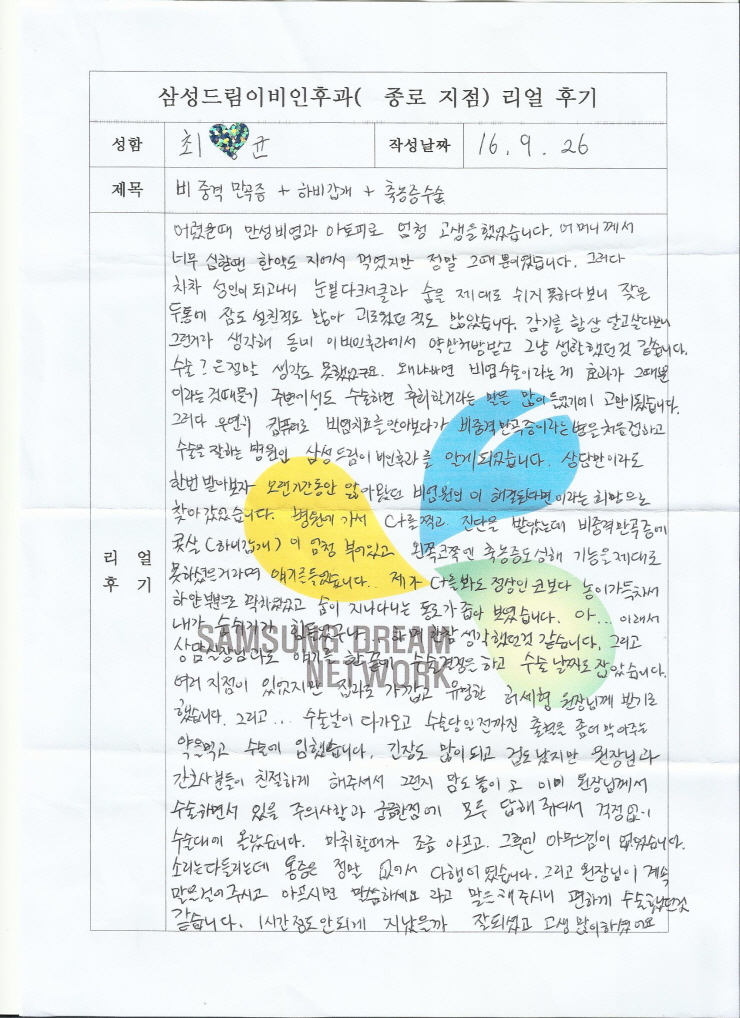 삼성드림이비인후과( 종로 지점) 리얼 후기
성함 최 균 작성날짜 16. 9. 26
제목 비중격만곡증 + 하비갑개 + 축농증수술
리 얼
후 기
어렸을때 만성비염과 아토피로 엄청 고생을했었습니다. 어머니께서
너무 심할땐 한약도 지어서 먹였지만 정말 그때뿐이였답니다. 그러다
차차 성인이되고나니 눈밑다크서클과 숨을 제대로 쉬기 못하다보니 잦은
두통에 잠도 설친적도 많아 괴로웠던 적도 많았습니다. 감기를 항상 달고살다보니
그런거라 생각해 동네 이비인후과에서 약만처방받고 그냥 생활했던것 같습니다.
수술? 은정말 생각도 못했었구요. 왜냐하면 비염수술이라는게 효과가 그때뿐
이라는것때문기 주변에서도 수술하면 후회할거라는 말을 많이 들었기에 고민이됬습니다.
그러다 우연히 컴퓨터로 비염치료를알아보다가 비중격만곡증이라는병을처음접하고
수술을 잘하는 병원인 삼성드림이비인후과를 알게되었습니다. 상담만이라도
한번 받아보자 오랜기간동안 앓아왔던 비염원인이 해결된다면이라는 희망으로
찾아갔었습니다. 병원에가서 CT를찍고 진단을 받았는데 비중격만곡증에
콧살(하비갑개)이 엄청 부어있고 왼쪽코쪽엔 축농증도심해 기능을제대로
못하셨을거라며 얘기를들었습니다.. 제가 CT를봐도 정상인 코보다 농이가득차서
하얀부분으로 꽉차있었고 숨이 지나다니는 통로가좁아 보였습니다. 아... 이래서
내가 숨쉬기가 힘들었구나... 하며 한참 생각했던것 같습니다. 그리고
상담실장님과도 얘기를 한끝에 수술결정을하고 수술 날짜도잡았습니다.
여러 지점이 있었지만 집과도 가깝고 유명한 허세형 원장님께 받기로
했습니다. 그리고... 수술날이 다가오고 수술당일전까진 출혈을 좀더막아주는
약을먹고 수술에 임했습니다. 긴장도 많이되고 겁도났지만 원장님과
간호사분들이 친절하게 해주셔서 그런지 맘도놓이고 이미 원장님께서
수술하면서 있을 주의사항과 궁금한점에 모두 답해주셔서 걱정없이
수술대에 올랐습니다. 마취할때가 조금 아프고. 그후엔 아무느낌이 없었습니다.
소리는다들리는데 통증은 정말 없어서 다행이였습니다. 그리고 원장님이 계속
말은걸어주시고 아프시면 말씀하세요 라고 말은해주시니 편하게 수술했던것
같습니다. 1시간정도안되게 지났을까 잘되셨고 고생 많이하셨어요
SAMSUNG DREAM
NETWORK